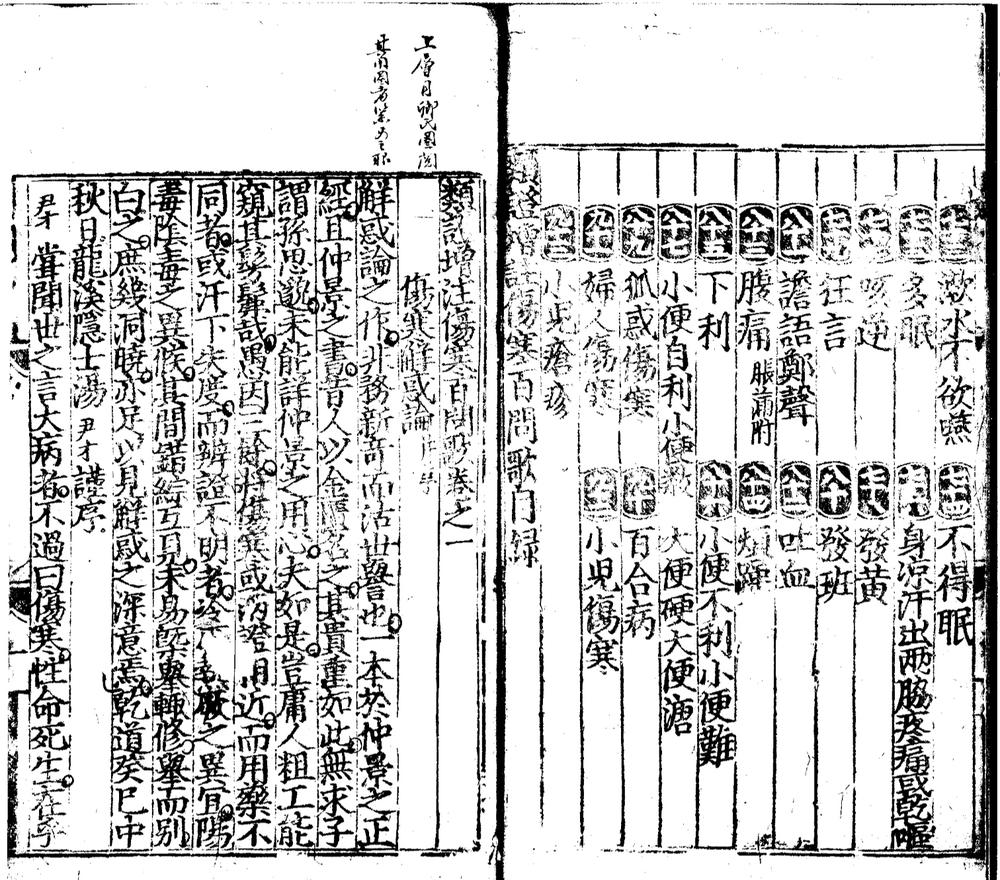 漱水不欲嚥
不得眠
多眠
身涼汗出兩脇疼痛或乾嘔
咳逆
發黃
狂言
發班
八十
譫語鄭聲
吐血
腹痛 脹滿附
煩躁
下利
小便不利小便難
小便自利小便數
大便硬大便溏
狐惑傷寒
百合病
婦人傷寒
小兒傷寒
小兒瘡疹
類證增註傷寒百問歌門錄
類證增注傷寒百問歌卷之一
傷寒解惑論 并序
解惑論之作非務新奇而沽世譽也一本於仲景之正
經且仲景之書昔人以金匱名之其貴重如此無求子
謂孫思邈未能詳仲景之用心夫如是豈庸人粗工能
窺其髣髴哉愚因三餘將傷寒或病證相近而用藥不
同者或汗下失度而辨證不明者冷厥熱厥之異宜陽
毒陰毒之異候其間錯綜互見未易槩舉輒修舉而別
白之庶幾洞曉亦足以見解惑之深意焉乾道癸巳中
秋日龍溪隱士湯尹才謹序
尹才嘗聞世之言大病者不過曰傷寒性命死生在乎